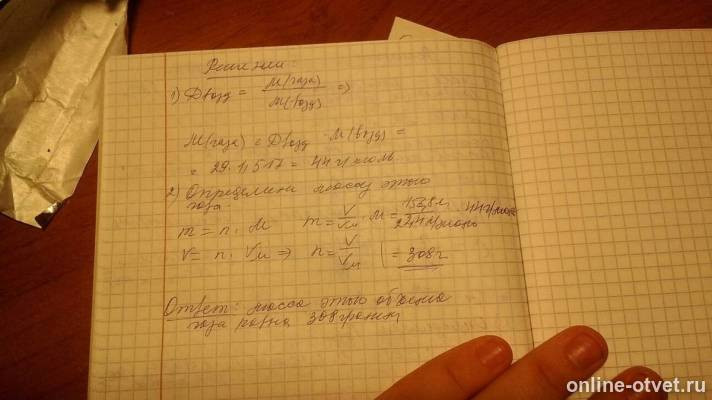 Решение:
1) Dвозд = M(газа) / M(возд) =>
M(газа) = Dвозд · M(возд) =
= 29 · 1,517 = 44 г/моль
2) Определим массу этого
газа:
m = n · M m = V/Vм · M = 156,8 л / 22,4 л/моль · 44 г/моль
V = n · Vм => n = V/Vм = 308 г
Ответ: масса этого объема
газа равна 308 грамм
online-otvet.ru